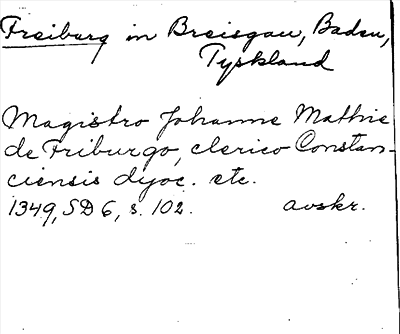 Freiburg in Breisgau, Baden,
Tyskland
Magistro Johanne Mathie
de Friburgo, clerico Constan-
ciensis dyoc. etc.
1349, SD 6, s. 102. avskr.